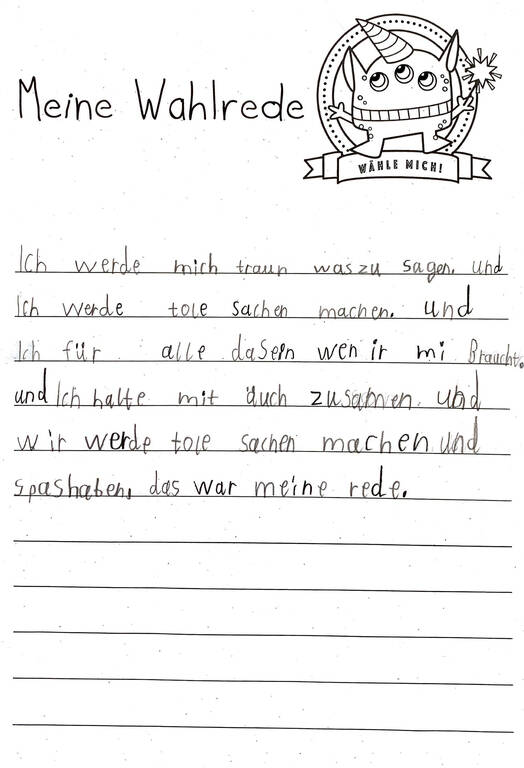 Meine Wahlrede
WÄHLE MICH!
Ich werde mich traun was zu sagen. und
Ich werde tole sachen machen. und
Ich für alle dasein wen ir mi Braucht.
und Ich halte mit äuch zusamen und
wir werde tole sachen machen und
spashaben, das war meine rede.